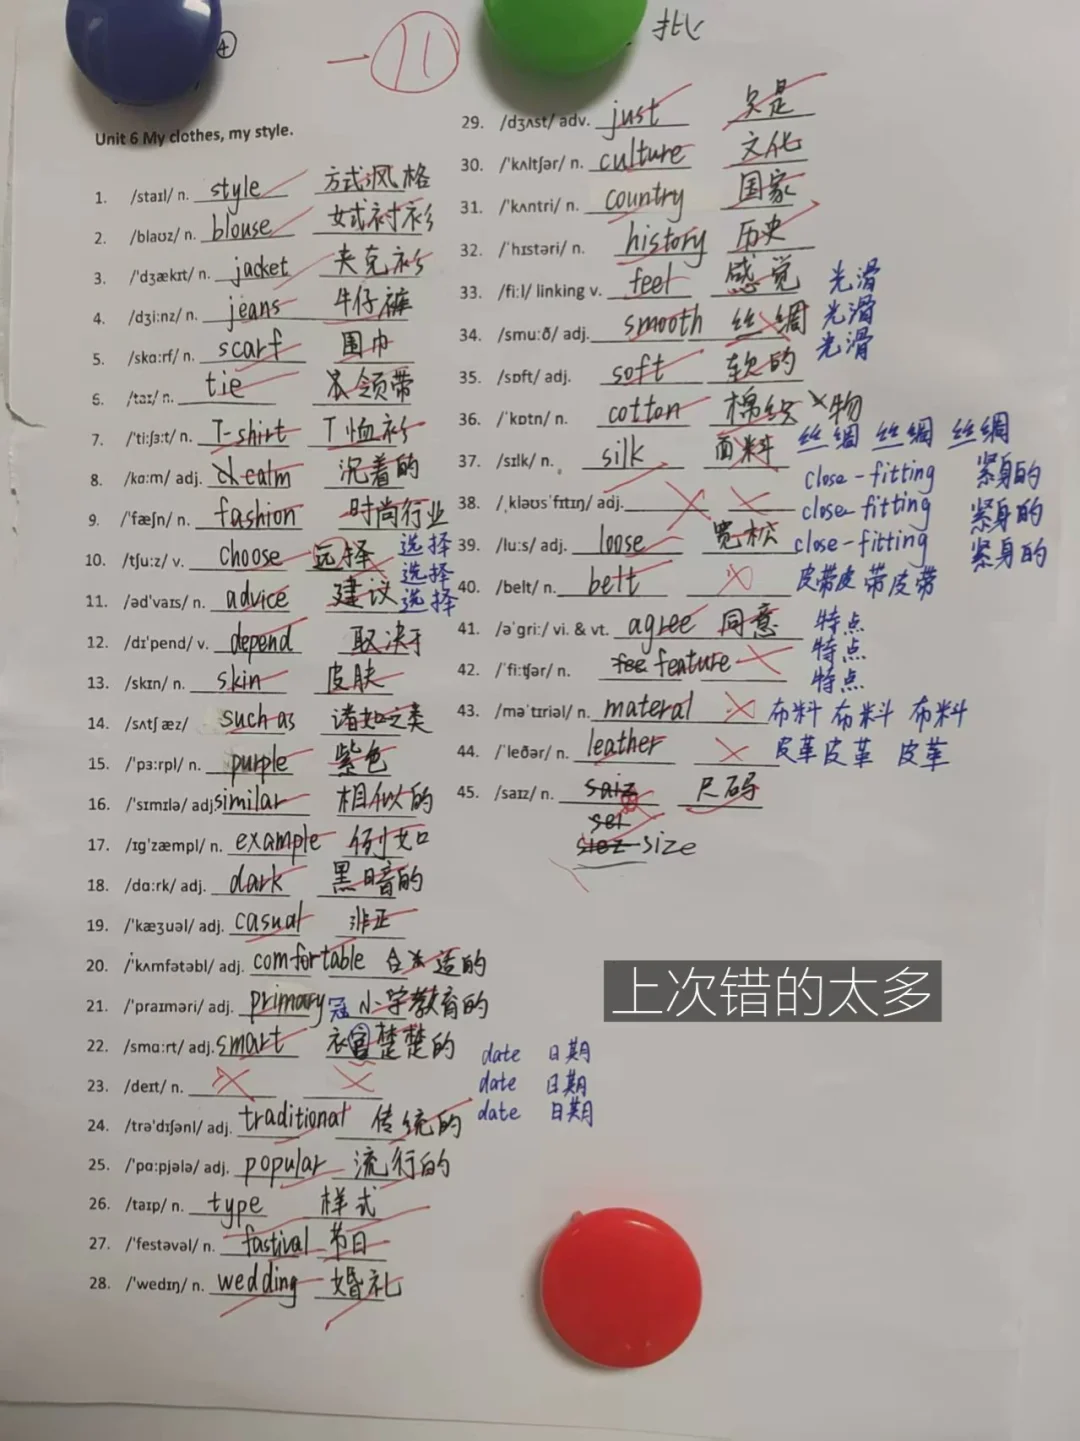 ④
-11
批
Unit 6 My clothes, my style.
1. /staɪl/ n. style 方式风格
2. /blaʊz/ n. blouse 女式衬衫
3. /'dʒækɪt/ n. jacket 夹克衫
4. /dʒi:nz/ n. jeans 牛仔裤
5. /skɑ:rf/ n. scarf 围巾
6. /taɪ/ n. tie 领带
7. /'ti:ʃɜ:t/ n. T-shirt T恤衫
8. /kɑ:m/ adj. calm 沉着的
9. /'fæʃn/ n. fashion 时尚行业
10. /tʃu:z/ v. choose 远择 选择
选择
11. /əd'vaɪs/ n. advice 建议 选择
12. /dɪ'pend/ v. depend 取决于
13. /skɪn/ n. skin 皮肤
14. /sʌtʃ æz/ such as 诸如之类
15. /'pɜ:rpl/ n. purple 紫色
16. /'sɪmɪlə/ adj. similar 相似的
17. /ɪg'zæmpl/ n. example 例如
18. /dɑ:rk/ adj. dark 黑暗的
19. /'kæʒuəl/ adj. casual 非正
20. /'kʌmfətəbl/ adj. comfortable 合适的
21. /'praɪməri/ adj. primary 小学教育的
冠
22. /smɑ:rt/ adj. smart 衣官楚楚的
23. /deɪt/ n.
date 日期
date 日期
date 日期
24. /trə'dɪʃənl/ adj. traditional 传统的
25. /'pɑ:pjələ/ adj. popular 流行的
26. /taɪp/ n. type 样式
27. /'festəvəl/ n. fastival 节日
28. /'wedɪŋ/ n. wedding 婚礼
29. /dʒʌst/ adv. just 只是
30. /'kʌltʃər/ n. culture 文化
31. /'kʌntri/ n. country 国家
32. /'hɪstəri/ n. history 历史
33. /fi:l/ linking v. feel 感觉 光滑
34. /smu:ð/ adj. smooth 丝绸 光滑
光滑
35. /sɒft/ adj. soft 软的
36. /'kɒtn/ n. cotton 棉织物
37. /sɪlk/ n. silk 面料 丝绸 丝绸 丝绸
close-fitting 紧身的
38. /ˌkləʊs'fɪtɪŋ/ adj. close-fitting 紧身的
39. /lu:s/ adj. loose 宽松 close-fitting 紧身的
40. /belt/ n. belt 皮带皮带皮带
41. /ə'gri:/ vi. & vt. agree 同意 特点
特点
42. /'fi:tʃər/ n. feature 特点
43. /mə'tɪriəl/ n. materal 布料 布料 布料
44. /'leðər/ n. leather 皮革皮革 皮革
45. /saɪz/ n. saiz 尺码
sei
siez size
上次错的太多